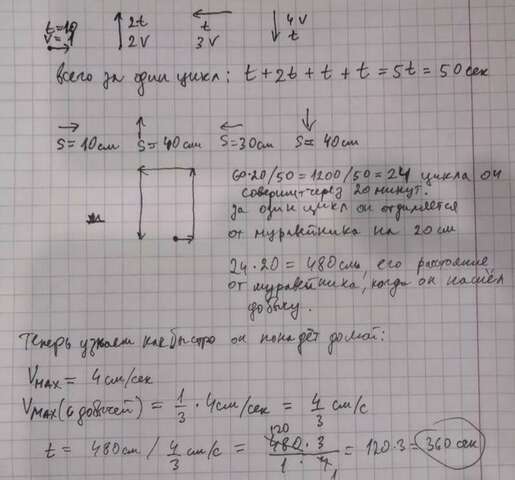 t=10 2t ← t 4V
V=1 ↑ 2V 3V ↓ t
всего за один цикл: t+2t+t+t=5t=50сек
→ ↑ ← ↓
S=10см S=40см S=30см S=40см
60·20/50=1200/50=24 цикла он
совершит через 20 минут.
За один цикл он отдаляется
от муравейника на 20 см
24·20=480см, его расстояние
от муравейника, когда он нашёл
добычу.
Теперь узнаем как быстро он попадёт домой:
Vmax = 4см/сек
Vmax(с добычей) = 1/3 · 4см/сек = 4/3 см/с
t = 480см / 4/3 см/с = 480·3/1·4 = 120·3=360 сек
120 1